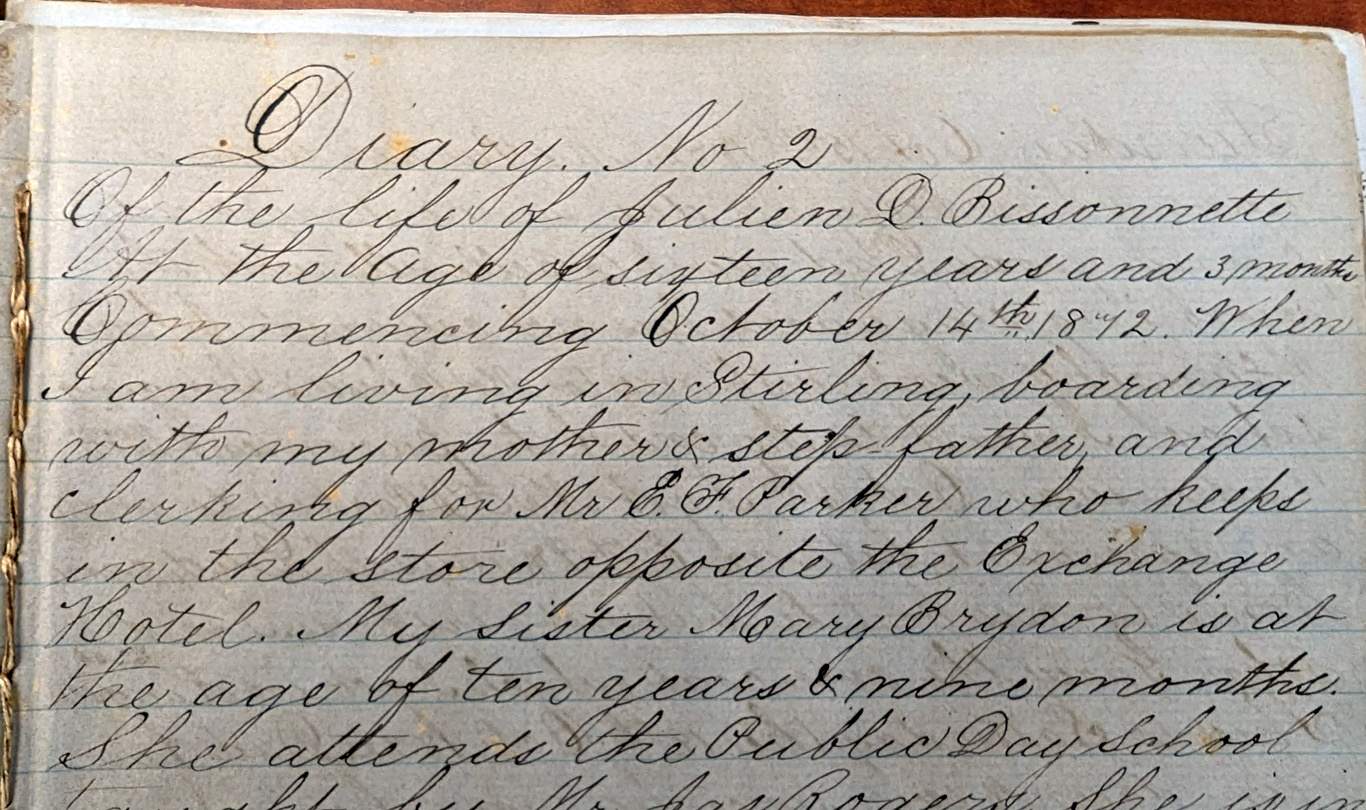 Diary. No 2
Of the life of Julien D. Bissonnette
At the Age of sixteen years and 3 months
Commencing October 14th 1872. When
I am living in Stirling, boarding
with my mother & step-father, and
clerking for Mr E. F. Parker who keeps
in the store opposite the Exchange
Hotel. My sister Mary Brydon is at
the age of ten years & nine months.
She attends the Public Day School
taught by Mr Jas Rogers. She is in